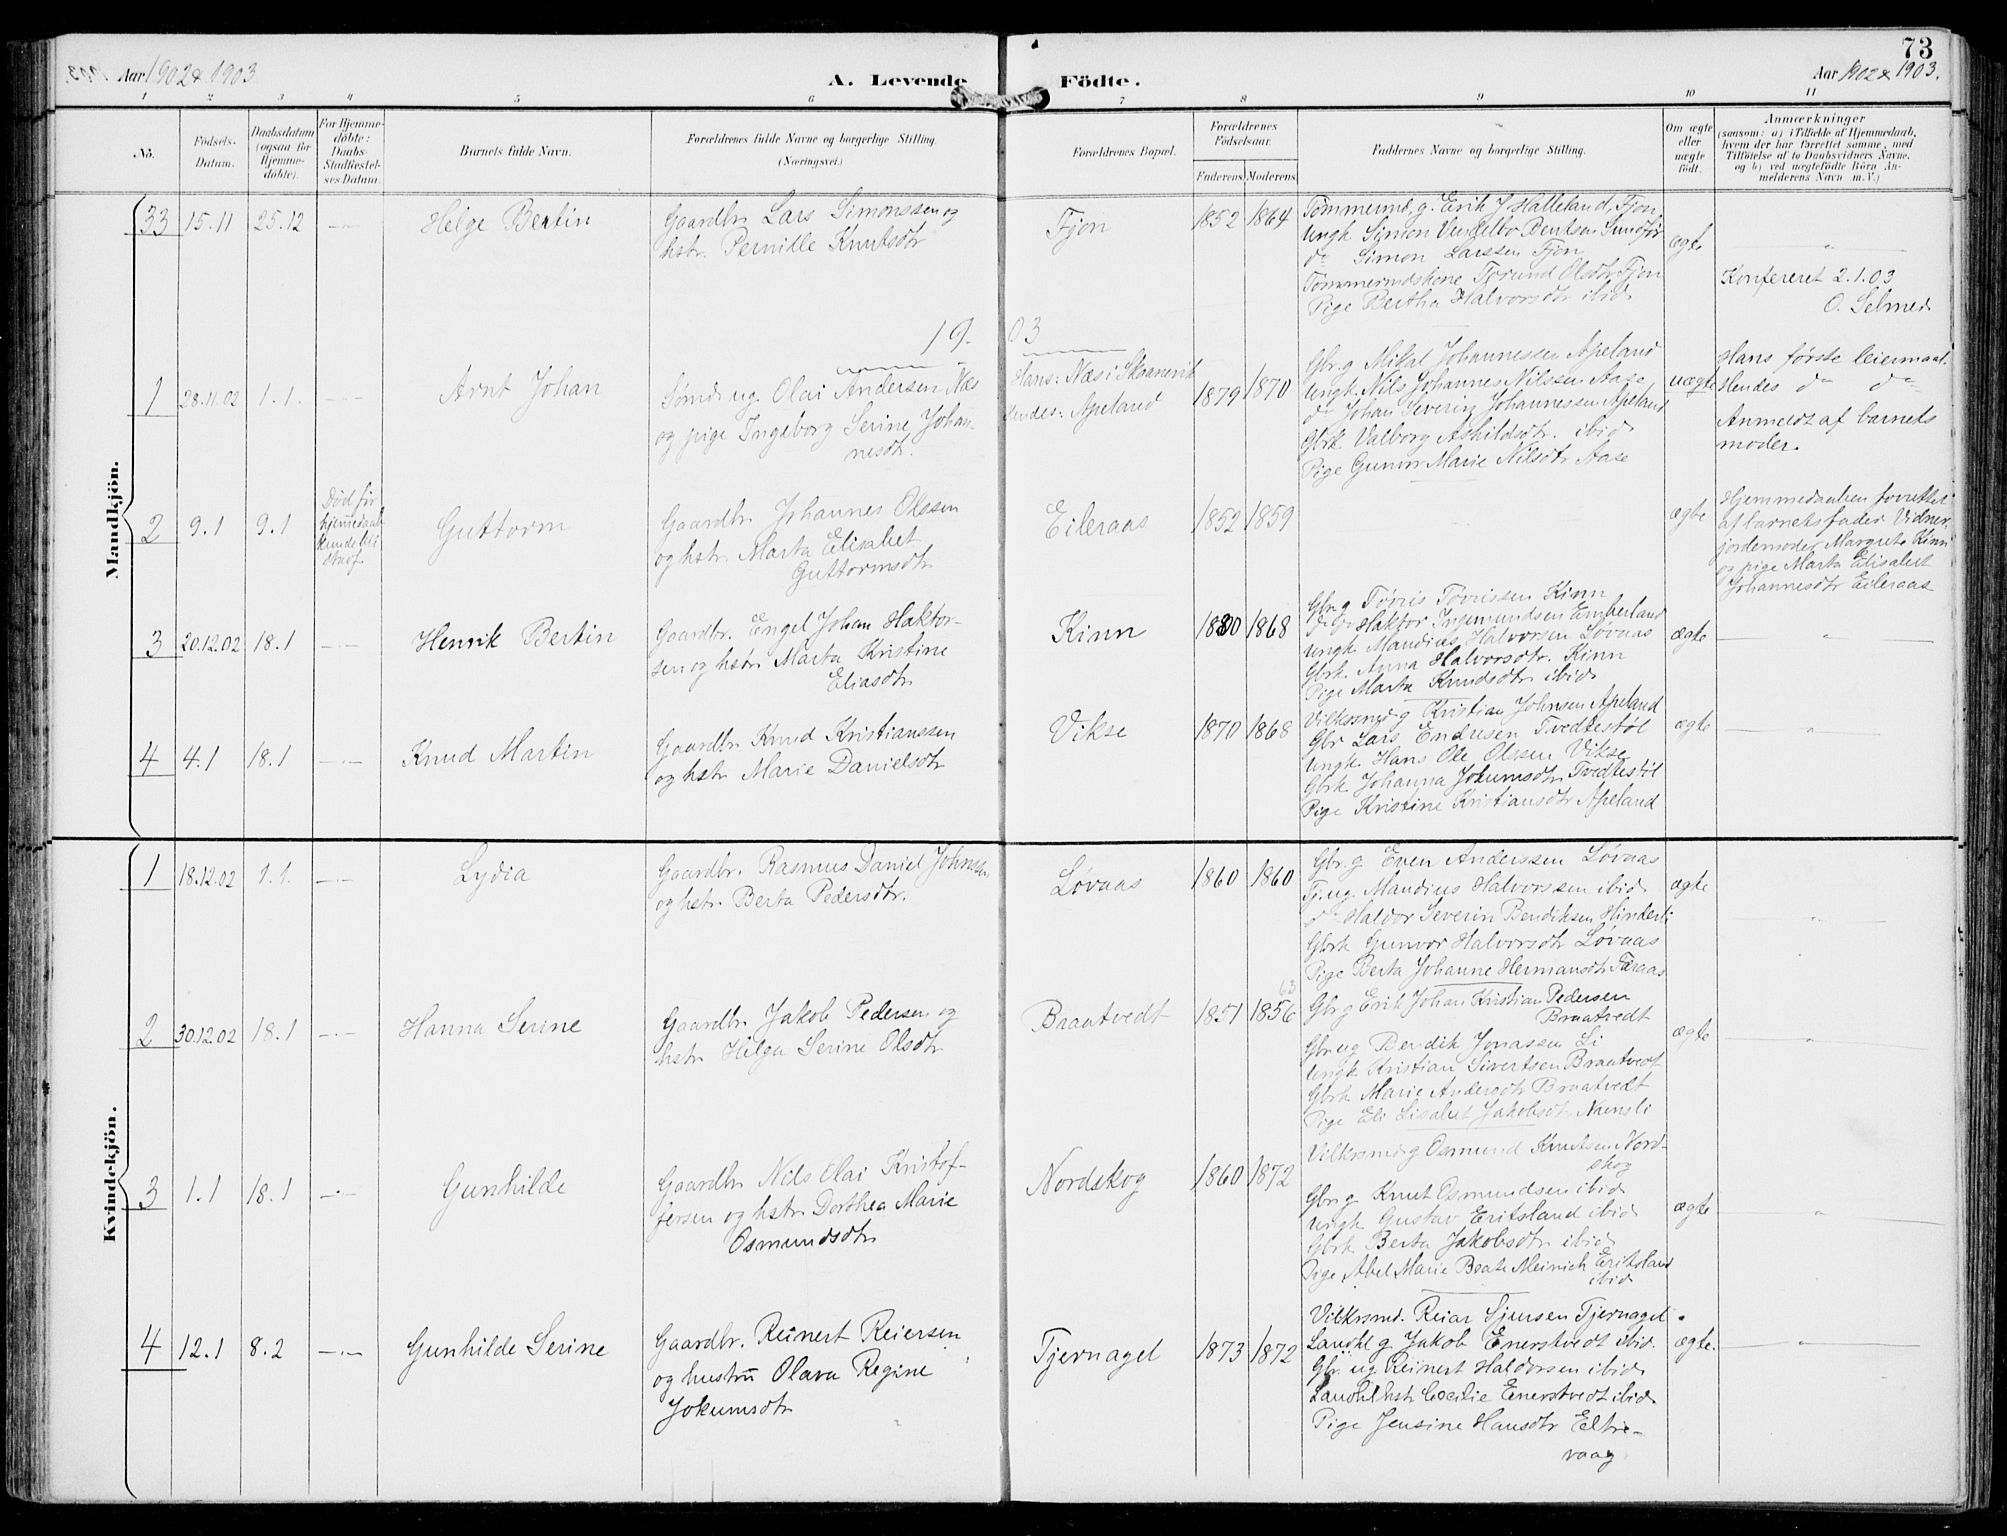 73
Aar 1902 & 1903
A. Levende Födte.
Aar 1902 & 1903.
1 2 3 4 5 6 7 8 9 10 11
No.
Födsels-
Datum.
Daabsdatum
(ogsaa for
Hjemme-
döbte).
For Hjemme-
döbte:
Daabs-
Stadfæstel-
ses Datum.
Barnets fulde Navn.
Forældrenes fulde Navne og borgerlige Stilling.
(Næringsvei.)
Forældrenes Bopæl.
Forældrenes
Födselsaar.
Faderens Moderens
Faddernes Navne og borgerlige Stilling.
Om ægte
eller
uægte
födt.
Anmærkninger
(saasom: a) i Tilfælde af Hjemmedaab,
hvem der har forrettet samme, med
Tilföielse af to Daabsvidners Navne,
og b) ved uægtefödte Börn An-
melderens Navn m. V.)
Mandkjön.
33 15.11 25.12
Helge Bertin
Gaardbr. Lars Simonssen og
hstr. Pernille Knutsdtr
Fjon
1852 1864
Tömmermd, g. Erik J. Halleland, Fjon
Ungk. Simon Vendelbo Bentsen Sundfør
do Simon Larssen Fjon
Tömmermdskone Torund Olsdtr Fjon
Pige Bertha Halvorsdtr ibid
ægte
Konfereret 2.1.03
O. Selmer
1903
1 28.11.02 1.1.
Arnt Johan
Sømd ug. Olai Andersen Næs
og pige Ingeborg Serine Johan-
nesdtr.
Hans: Næs i Skaanevik
Hendes: Apeland
1879 1870
Gbr. g Mikal Johannessen Apeland
Ungk. Nils Johannes Nilssen Aase
do Johan Severin Johannessen Apeland
Gbrk Valborg Askildsdtr. ibid
Pige Gunvor Marie Nilsdtr Aase
uægte
Hans første leiermaal.
Hendes do do
Anmeldt af barnets
moder.
2 9.1 9.1
Død før
hjemmedaab
kunde bli
stadf.
Guttorm
Gaardbr Johannes Olssen
og hstr. Marta Elisabet
Guttormsdtr
Eileraas
1852 1859
ægte
Hjemmedaaben forrettet
af barnets fader Vidner
jordemoder Margrete Kinn
og pige Marta Elisabet
Johannesdtr Eileraas
3 20.12.02 18.1
Henrik Bertin
Gaardbr. Engel Johan Haktor-
sen og hstr Marta Kristine
Eliasdtr
Kinn
1880 1868
Gbr. g Tøris Tørrissen Kinn
do do Haktor Ingemundsen Emberland
Ungk Mandias Halvorsen Løvaas
Gbrk. Anna Halvorsdtr. Kinn
Pige Marta Knudsdtr ibid
ægte
4 4.1 18.1
Knud Martin
Gaardbr Knud Kristianssen
og hstr Marie Danielsdtr
Vikse
1870 1868
Vilkrsmd g Kristian Johnsen Apeland
Gbr Lars Endresen Tvedtestøl
Ungk. Hans Ole Olssen Vikse
Gbrk Johanna Jokumsdtr Tvedtestøl
Pige Kristine Kristiansdtr Apeland
ægte
Kvindekjön.
1 18.12.02 1.1.
Lydia
Gaardbr. Rasmus Daniel Johnssen
og hstr Berta Pedersdtr.
Løvaas
1860 1860
Gbr. g Even Anderssen Løvaas
Tj. ug. Mandius Halvorssen ibid
do Haldor Severin Bendiksen Hinderli
Gbrk Gunvor Halvorsdtr Løvaas
Pige Berta Johanne Hermansdtr Faraas
ægte
2 30.12.02 18.1
Hanna Serine
Gaardbr Jakob Pedersen og
hstr Helga Serine Olsdtr
Braatvedt
1851 1856
63
Gbr g Erik Johan Kristian Pedersen
Braatvedt
Gbr ug Bendik Jonassen Li
Ungk Kristian Sivertsen Braatvedt
Gbrk Marie Andersdtr Braatvedt
Pige Eli Lisabet Jakobsdtr Nunsli
ægte
3 1.1 18.1
Gunhilde
Gaardbr Nils Olai Kristof-
fersen og hstr Dorthea Marie
Osmundsdtr
Nordskog
1860 1872
Vilkrsmd g Osmund Knutsen Nord-
skog
Gbr. g Knut Osmundsen ibid
Ungk Gustav Eritsland ibid
Gbrk Berta Jakobsdtr ibid
Pige Abel Marie Beate Meinich Eritsland
ibid
ægte
4 12.1 8.2
Gunhilde Serine
Gaardbr. Reinert Reiersen
og hustru Olava Regine
Jokumsdtr
Tjernagel
1873 1872
Vilkrsmd. Reiar Sjursen Tjernagel
Landhl g Jakob Enerstvedt ibid.
Gbr. ug Reinert Haldorsen ibid
Landhl hst Cecilie Enerstvedt ibid
Pige Jensine Hansdtr Eltre-
vaag
ægte.